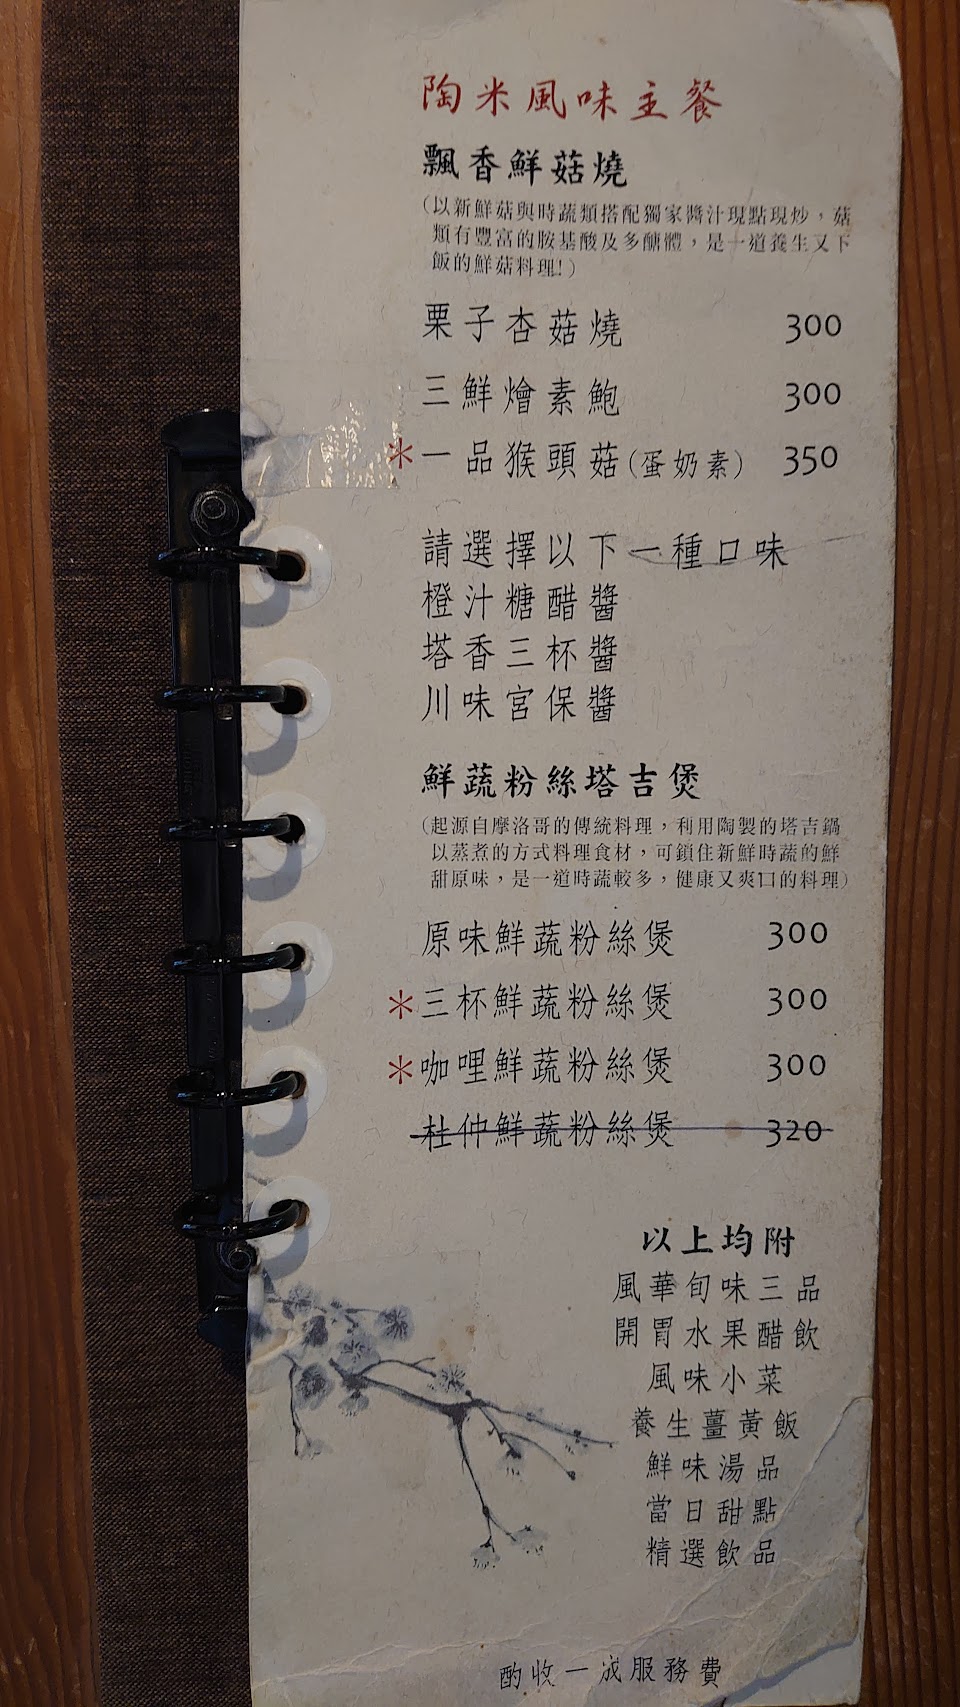 陶米風味主餐
飄香鮮菇燒
(以新鮮菇與時蔬類搭配獨家醬汁現點現炒，菇
類有豐富的胺基酸及多醣體，是一道養生又下
飯的鮮菇料理!)
栗子杏菇燒 300
三鮮燴素鮑 300
*一品猴頭菇(蛋奶素) 350
請選擇以下一種口味
橙汁糖醋醬
塔香三杯醬
川味宮保醬
鮮蔬粉絲塔吉煲
(起源自摩洛哥的傳統料理，利用陶製的塔吉鍋
以蒸煮的方式料理食材，可鎖住新鮮時蔬的鮮
甜原味，是一道時蔬較多，健康又爽口的料理)
原味鮮蔬粉絲煲 300
*三杯鮮蔬粉絲煲 300
*咖哩鮮蔬粉絲煲 300
杜仲鮮蔬粉絲煲 320
以上均附
風華旬味三品
開胃水果醋飲
風味小菜
養生薑黃飯
鮮味湯品
當日甜點
精選飲品
酌收一成服務費